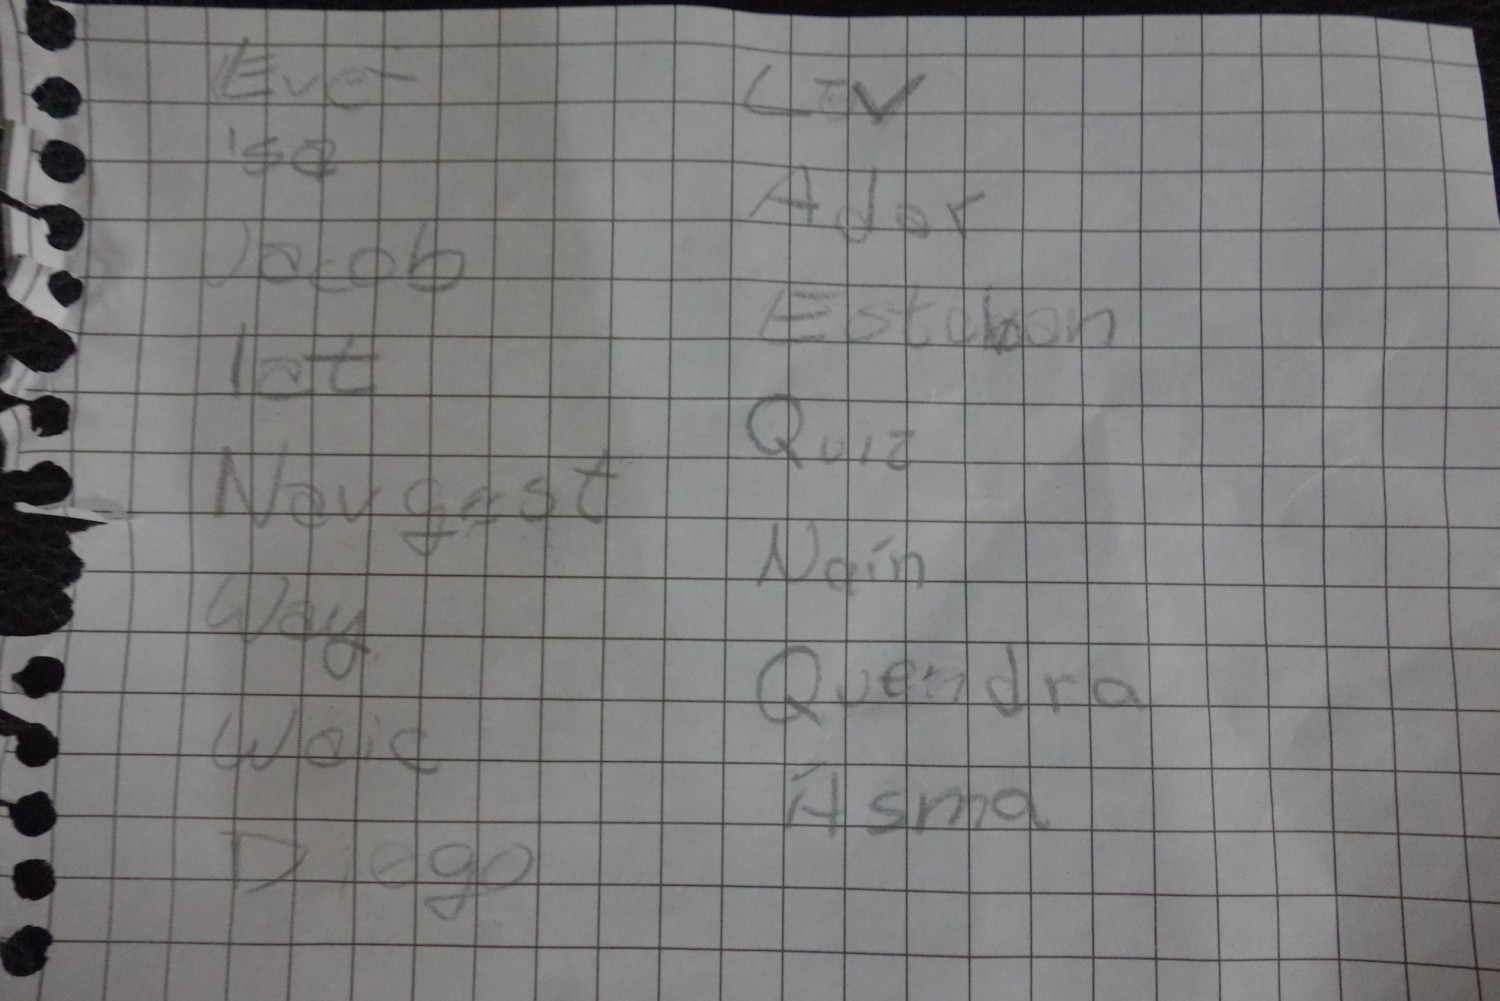 Eve-
isa
Jacob
Iat
Navgast
Way
Waic
Diego
Lev
Ader
Esteban
Quiz
Naín
Quendra
Asma